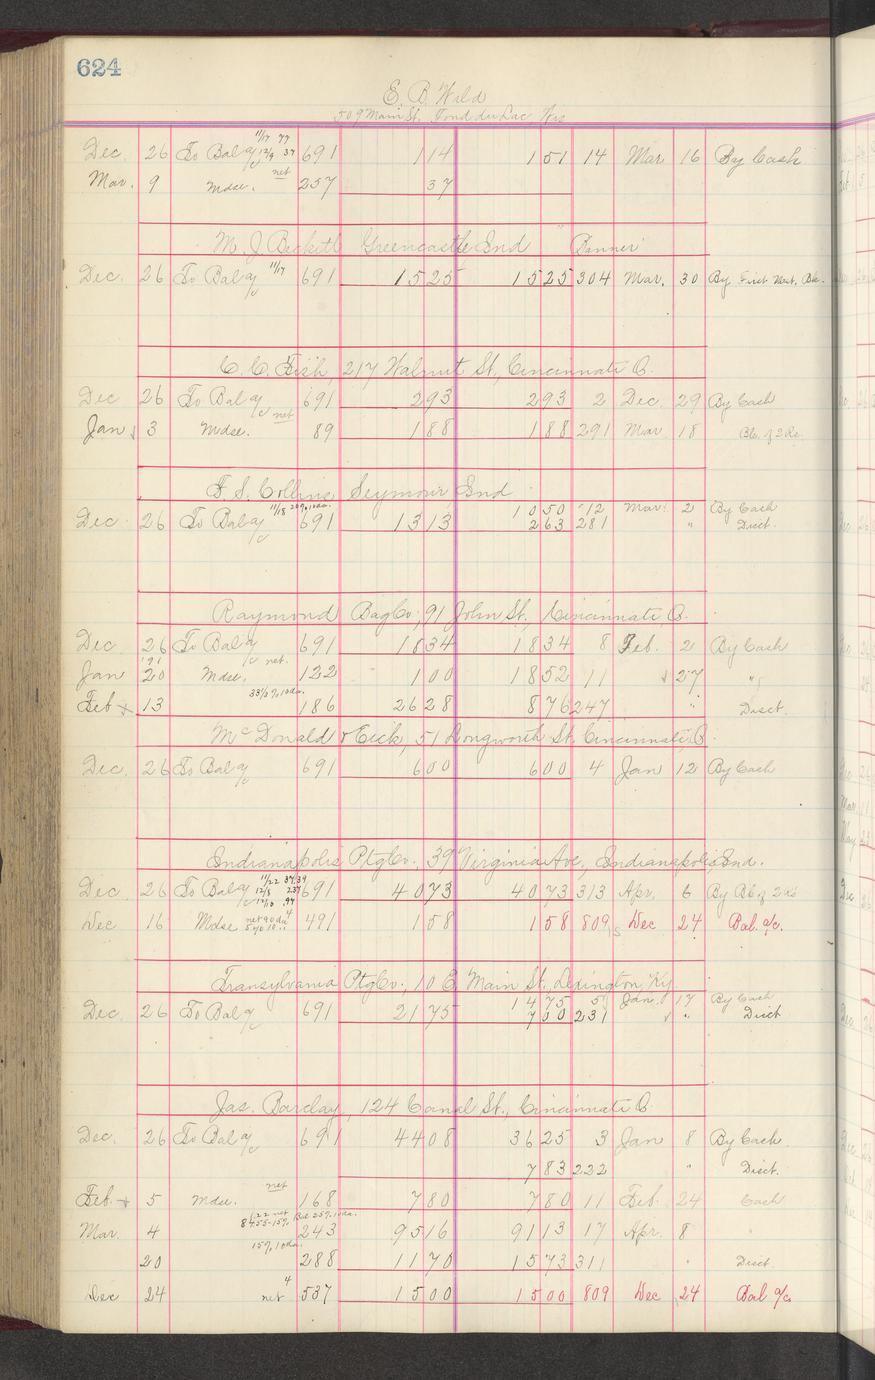 624
E. B. Wald
509 Main St. Fond du Lac Wis
Dec 26 To Bal a/c 11/17 77 12/9 37 691 1 14 1 51 14 Mar 16 By Cash
Mar. 9 Mdse. net 257 37
M. J. Beckett Greencastle Ind "Banner"
Dec. 26 To Bal a/c 11/17 691 15 25 15 25 304 Mar. 30 By First Nat. Bk.
C. C. Fish, 217 Walnut St., Cincinnati O.
Dec 26 To Bal a/c 691 2 93 2 93 2 Dec. 29 By Cash
Jan 3 Mdse. net 89 1 88 1 88 291 Mar 18 Bk. of 2
F. S. Collins Seymour Ind
Dec. 26 To Bal a/c 11/18 20% 10 da. 691 13 13 10 50 12 Mar. 2 By Cash
2 63 281 " Disct.
Raymond Bag Co., 91 John St., Cincinnati, O.
Dec. 26 To Bal a/c 691 18 34 18 34 8 Feb. 2 By Cash
Jan '91 20 Mdse. net. 122 1 00 18 52 11 27 "
Feb 13 33 1/3 % 10 da. 186 26 28 8 76 247 " Disct.
McDonald & Eick, 51 Longworth St. Cincinnati O.
Dec. 26 To Bal a/c 691 6 00 6 00 4 Jan 12 By Cash
Indianapolis Ptg Co., 39 Virginia Ave, Indianapolis, Ind.
Dec. 26 To Bal a/c 11/22 37.39 12/5 2.37 12/18 .97 691 40 73 40 73 313 Apr. 6 By Bk of 2
Dec 16 Mdse net 90 da 4 5% 10 " 491 1 58 1 58 809 Dec 24 Bal. a/c.
Transylvania Ptg Co., 10 E. Main St., Lexington Ky.
Dec. 26 To Bal a/c 691 21 75 14 75 5 Jan. 17 By Cash
7 00 231 " Disct
Jas. Barclay, 124 Canal St., Cincinnati O.
Dec. 26 To Bal a/c 691 44 08 36 25 3 Jan 8 By Cash.
7 83 222 " Disct.
Feb. 5 Mdse. net 168 7 80 7 80 11 Feb. 24 Cash
Mar. 4 1.22 net Bal 25% 10 da. 84.55 - 15% 243 95 16 91 13 17 Apr. 8 "
20 15% 10 da. 288 11 70 15 73 311 " Disct.
Dec 24 net 4 537 15 00 15 00 809 Dec 24 Bal a/c